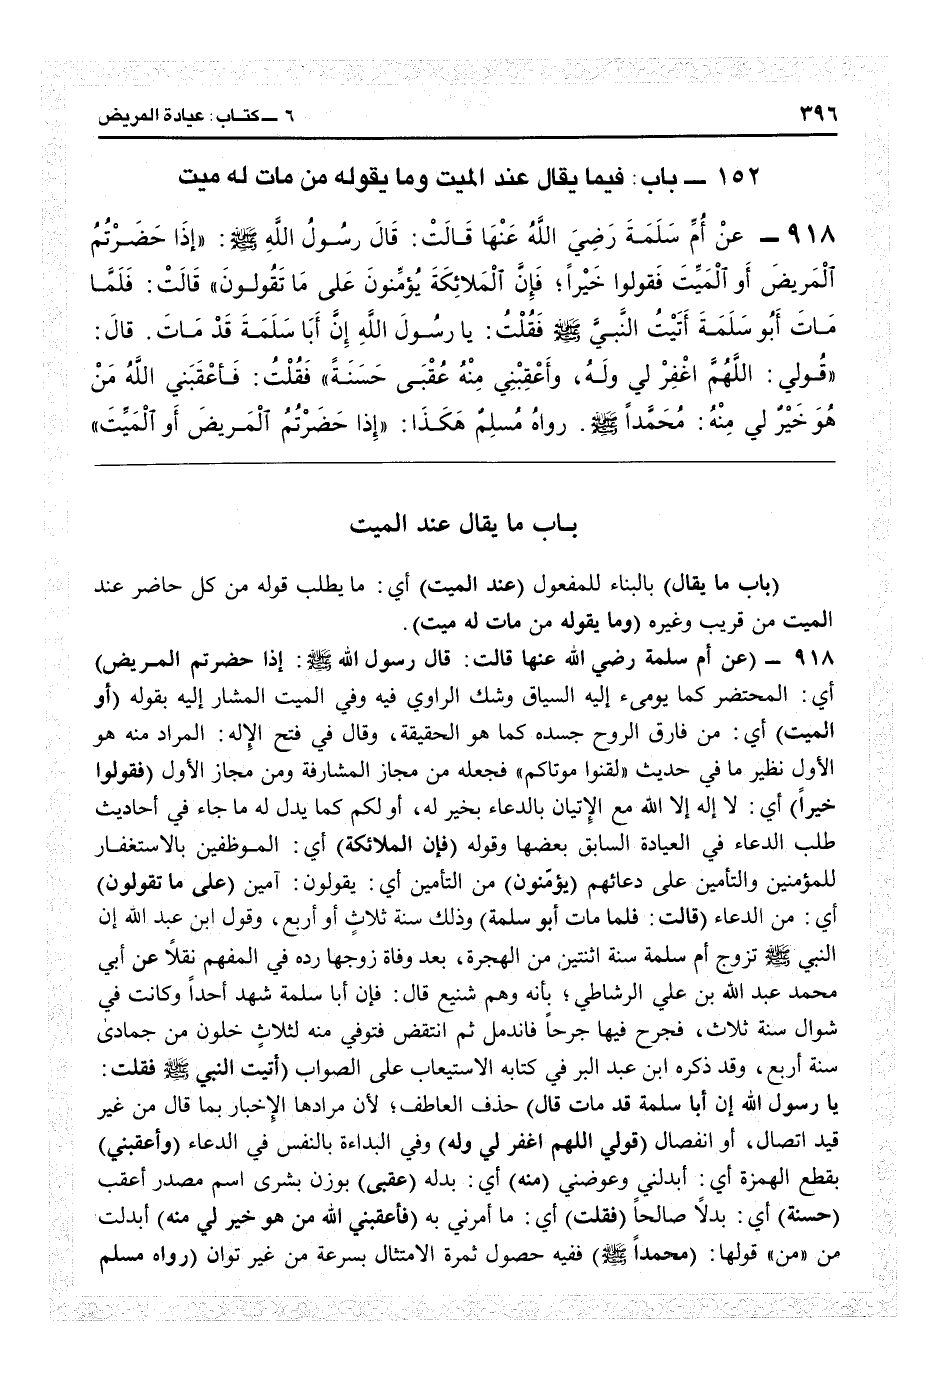 ٣٩٦
٦ ـ كتاب: عيادة المريض
١٥٢ ـ باب: فيما يقال عند الميت وما يقوله من مات له ميت
٩١٨ ـ عنْ أُمِّ سَلَمَةَ رَضِيَ اللَّهُ عَنْهَا قَالَتْ: قَالَ رسُولُ اللَّهِ ﷺ: «إذَا حَضَرْتُمُ
ٱلْمَريضَ أو ٱلْمَيِّتَ فَقولوا خَيْراً؛ فَإِنَّ ٱلْمَلائِكَةَ يُؤَمِّنونَ عَلى مَا تَقُولونَ» قَالَتْ: فَلَمَّا
مَاتَ أَبُو سَلَمَةَ أَتَيْتُ النَّبيَّ ﷺ فَقُلْتُ: يا رسُولَ اللَّهِ إنَّ أبَا سَلَمَةَ قَدْ مَاتَ. قالَ:
«قُولي: اللَّهُمَّ اغْفِرْ لي ولَهُ، وأَعْقِبْنِي مِنْهُ عُقْبَى حَسَنَةً» فَقُلْتُ: فَأعْقَبَني اللَّهُ مَنْ
هُوَ خَيْرٌ لي مِنْهُ: مُحَمَّداً ﷺ. رواهُ مُسلِمٌ هَكَذَا: «إذا حَضَرْتُمُ ٱلْمَريضَ أو ٱلْمَيِّتَ»
باب ما يقال عند الميت
(باب ما يقال) بالبناء للمفعول (عند الميت) أي: ما يطلب قوله من كل حاضر عند
الميت من قريب وغيره (وما يقوله من مات له ميت).
٩١٨ ـ (عن أم سلمة رضي الله عنها قالت: قال رسول الله ﷺ: إذا حضرتم المريض)
أي: المحتضر كما يومىء إليه السياق وشك الراوي فيه وفي الميت المشار إليه بقوله (أو
الميت) أي: من فارق الروح جسده كما هو الحقيقة، وقال في فتح الإله: المراد منه هو
الأول نظير ما في حديث «لقنوا موتاكم» فجعله من مجاز المشارفة ومن مجاز الأول (فقولوا
خيراً) أي: لا إله إلا الله مع الإتيان بالدعاء بخير له، أو لكم كما يدل له ما جاء في أحاديث
طلب الدعاء في العيادة السابق بعضها وقوله (فإن الملائكة) أي: الموظفين بالاستغفار
للمؤمنين والتأمين على دعائهم (يؤمّنون) من التأمين أي: يقولون: آمين (على ما تقولون)
أي: من الدعاء (قالت: فلما مات أبو سلمة) وذلك سنة ثلاثٍ أو أربع، وقول ابن عبد الله إن
النبي ﷺ تزوج أم سلمة سنة اثنتين من الهجرة، بعد وفاة زوجها رده في المفهم نقلاً عن أبي
محمد عبد الله بن علي الرشاطي؛ بأنه وهم شنيع قال: فإن أبا سلمة شهد أحداً وكانت في
شوال سنة ثلاث، فجرح فيها جرحاً فاندمل ثم انتقض فتوفي منه لثلاثٍ خلون من جمادىٰ
سنة أربع، وقد ذكره ابن عبد البر في كتابه الاستيعاب على الصواب (أتيت النبي ﷺ فقلت:
يا رسول الله إن أبا سلمة قد مات قال) حذف العاطف؛ لأن مرادها الإِخبار بما قال من غير
قيد اتصال، أو انفصال (قولي اللهم اغفر لي وله) وفي البداءة بالنفس في الدعاء (وأعقبني)
بقطع الهمزة أي: أبدلني وعوضني (منه) أي: بدله (عقبى) بوزن بشرى اسم مصدر أعقب
(حسنة) أي: بدلاً صالحاً (فقلت) أي: ما أمرني به (فأعقبني الله من هو خير لي منه) أبدلت
من «من» قولها: (محمداً ﷺ) ففيه حصول ثمرة الامتثال بسرعة من غير توان (رواه مسلم